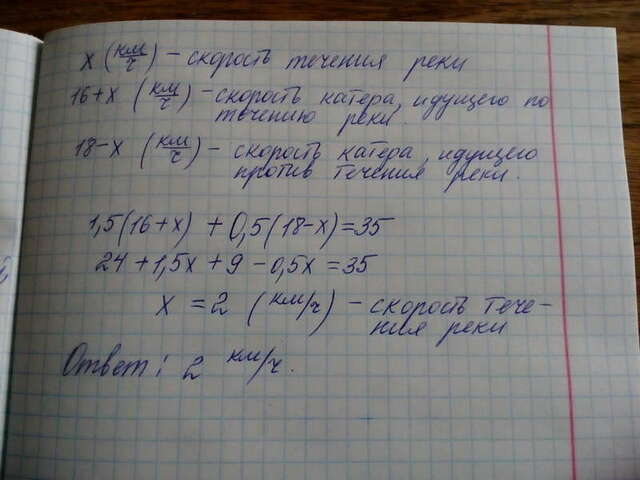 x (км/ч) – скорость течения реки
16+x (км/ч) – скорость катера, идущего по
течению реки.
18–x (км/ч) – скорость катера, идущего
против течения реки.
1,5(16+x) + 0,5(18–x)=35
24 + 1,5x + 9 – 0,5x = 35
x = 2 (км/ч) – скорость тече-
ния реки
Ответ: 2 км/ч.